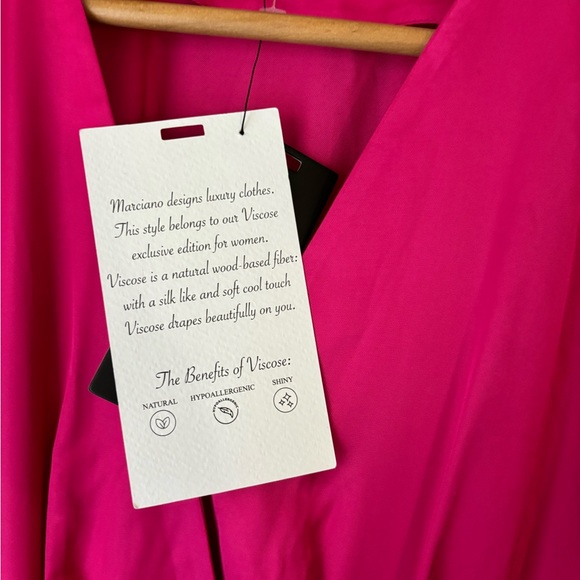 Marciano designs luxury clothes.
This style belongs to our Viscose
exclusive edition for women.
Viscose is a natural wood-based fiber:
with a silk like and soft cool touch
Viscose drapes beautifully on you.
The Benefits of Viscose:
NATURAL HYPOALLERGENIC SHINY
HYPOALLERGENIC